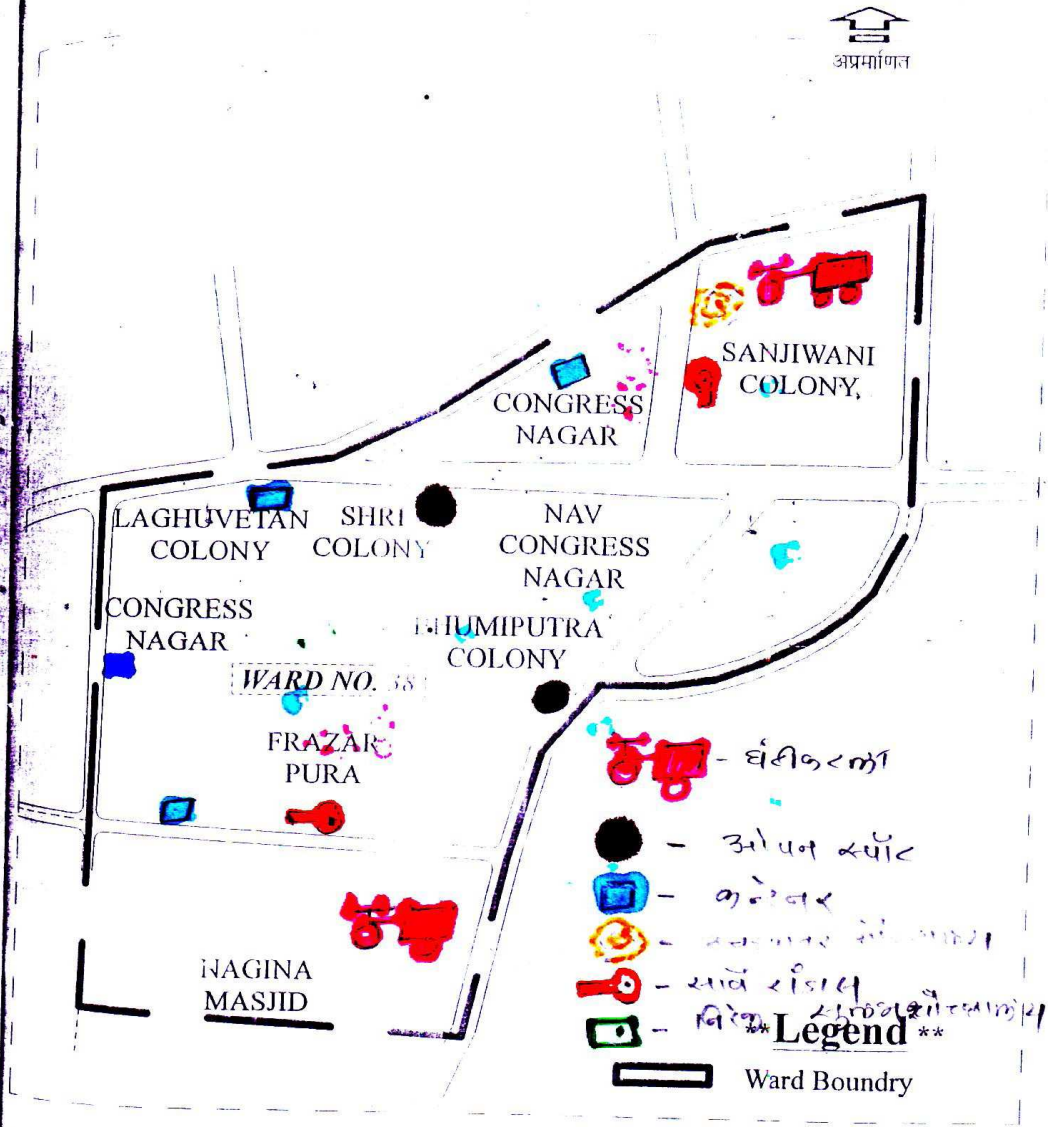 अप्रमाणित
SANJIWANI
COLONY,
CONGRESS
NAGAR
LAGHUVETAN
COLONY
SHRI
COLONY
NAV
CONGRESS
NAGAR
CONGRESS
NAGAR
BHUMIPUTRA
COLONY
WARD NO. 38
FRAZAR
PURA
NAGINA
MASJID
- घंटीकटला
- ओपन स्पॉट
- कन्टेनर
- सार्व संडास
**Legend**
Ward Boundry